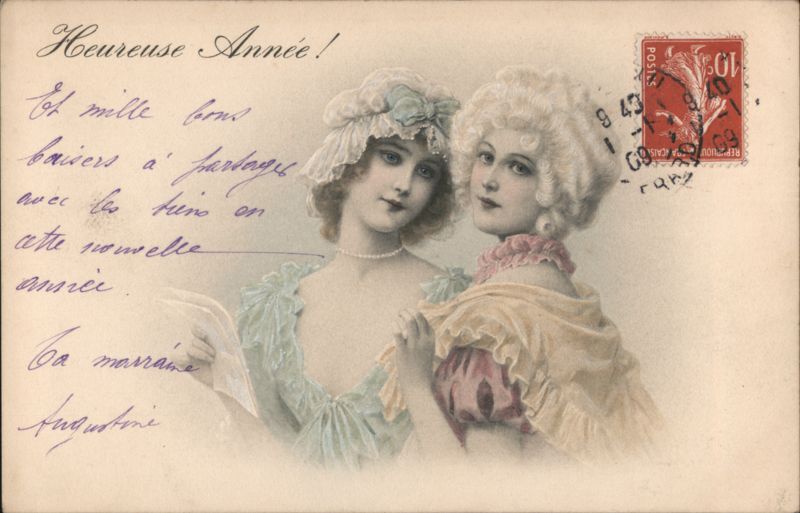 Heureuse Année !
Et mille bons
baisers à partager
avec les tiens en
cette nouvelle
année
Ta marraine
Augustine
10c
POSTES
RÉPUBLIQUE FRANÇAISE
9 40
1 - 1
09